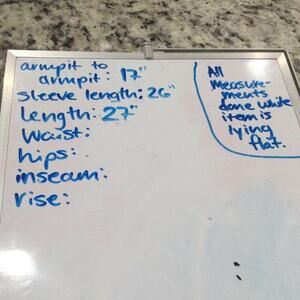 armpit to
armpit: 17"
sleeve length: 26"
Length: 27"
Waist:
hips:
inseam:
rise:
All
measure-
ments
done while
item is
lying
flat.